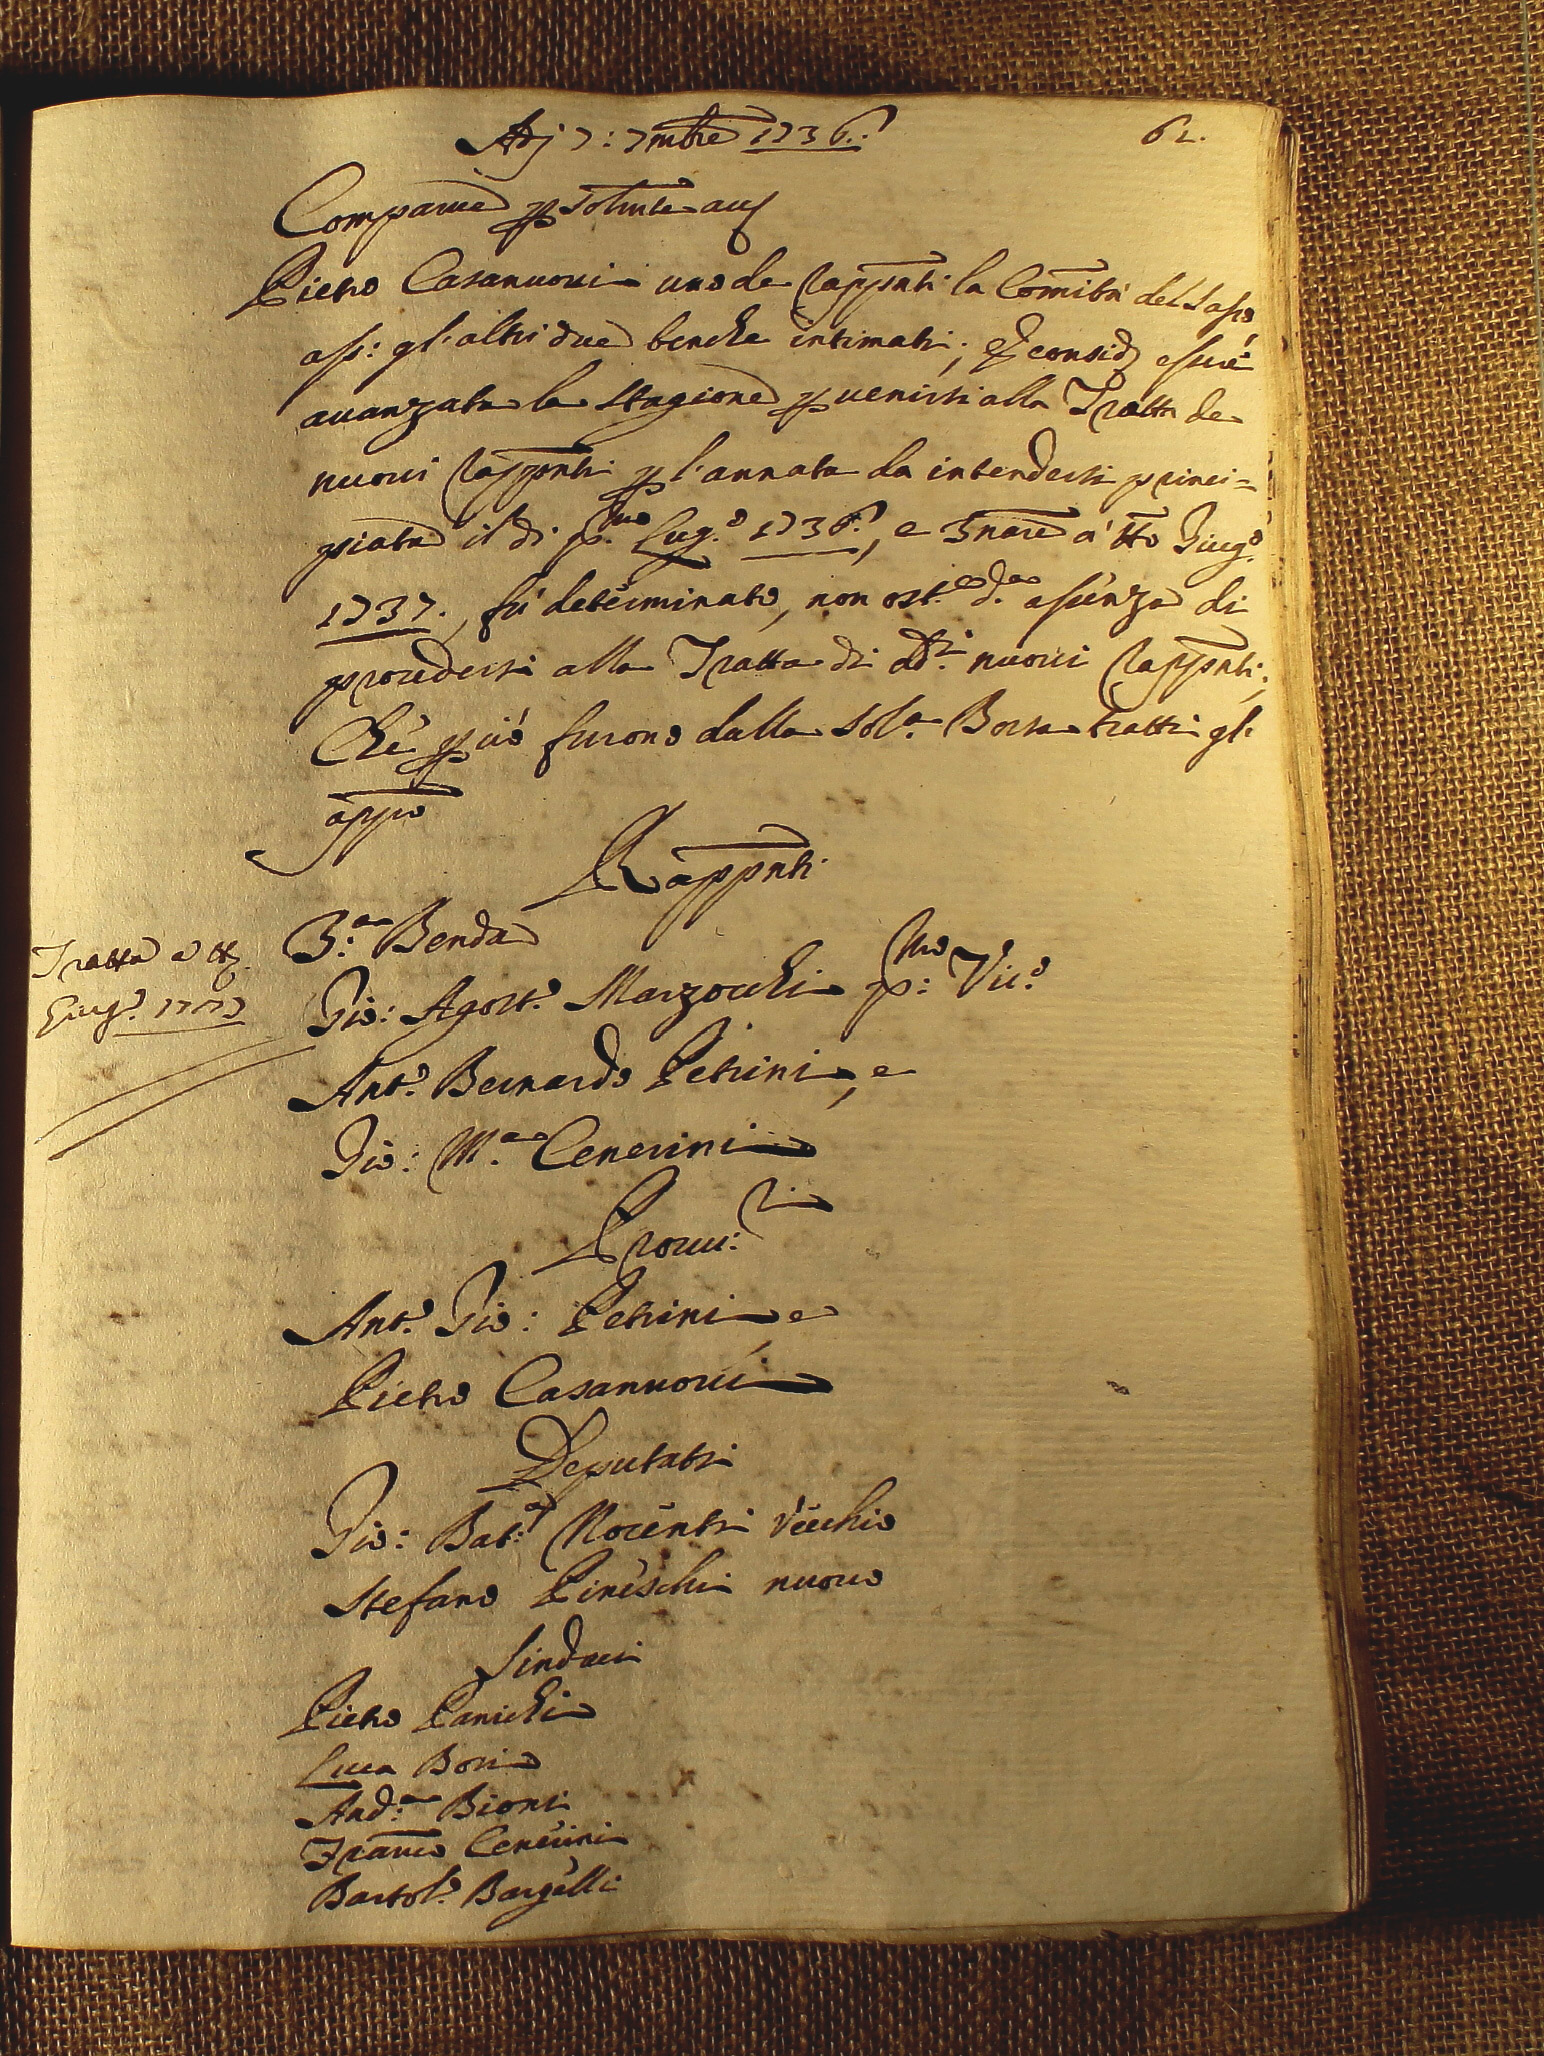 Adj 7: 7mbre 1736.
62.
Comparve p solmte
Pietro Casanuovi uno de Rapprnti la Comità del Sasso
ass: gl'altri due benche intimati; e consid essere
avanzata la stagione p venirsi alla Tratta de
nuovi Rapprnti p l'annata da intendersi princi=
piata il dì p.mo Lug.o 1736., e à tto Giug.o
1737., fù determinato, non ost.e d.a assenza di
procedersi alla Tratta di dd.i nuovi Rapprnti;
Che p ciò furono dalla Sol.a Borsa tratti gl'
appio
Rapprnti
Tratta
Giug.o
3.a Benda
Gio: Agost.o Marzocchi p:mo Vic.o
Ant.o Bernardo Petrini, e
Gio: M.a Cenerini
Provv:ri
Ant.o Gio: Petrini e
Pietro Casanuovi
Deputati
Gio: Bat:a Nocenti Vecchio
Stefano Pineschi nuovo
Sindaci
Pietro Panichi
Luca Bosi
And:a Bioni
Franco Cenerini
Bartol.o Bargelli